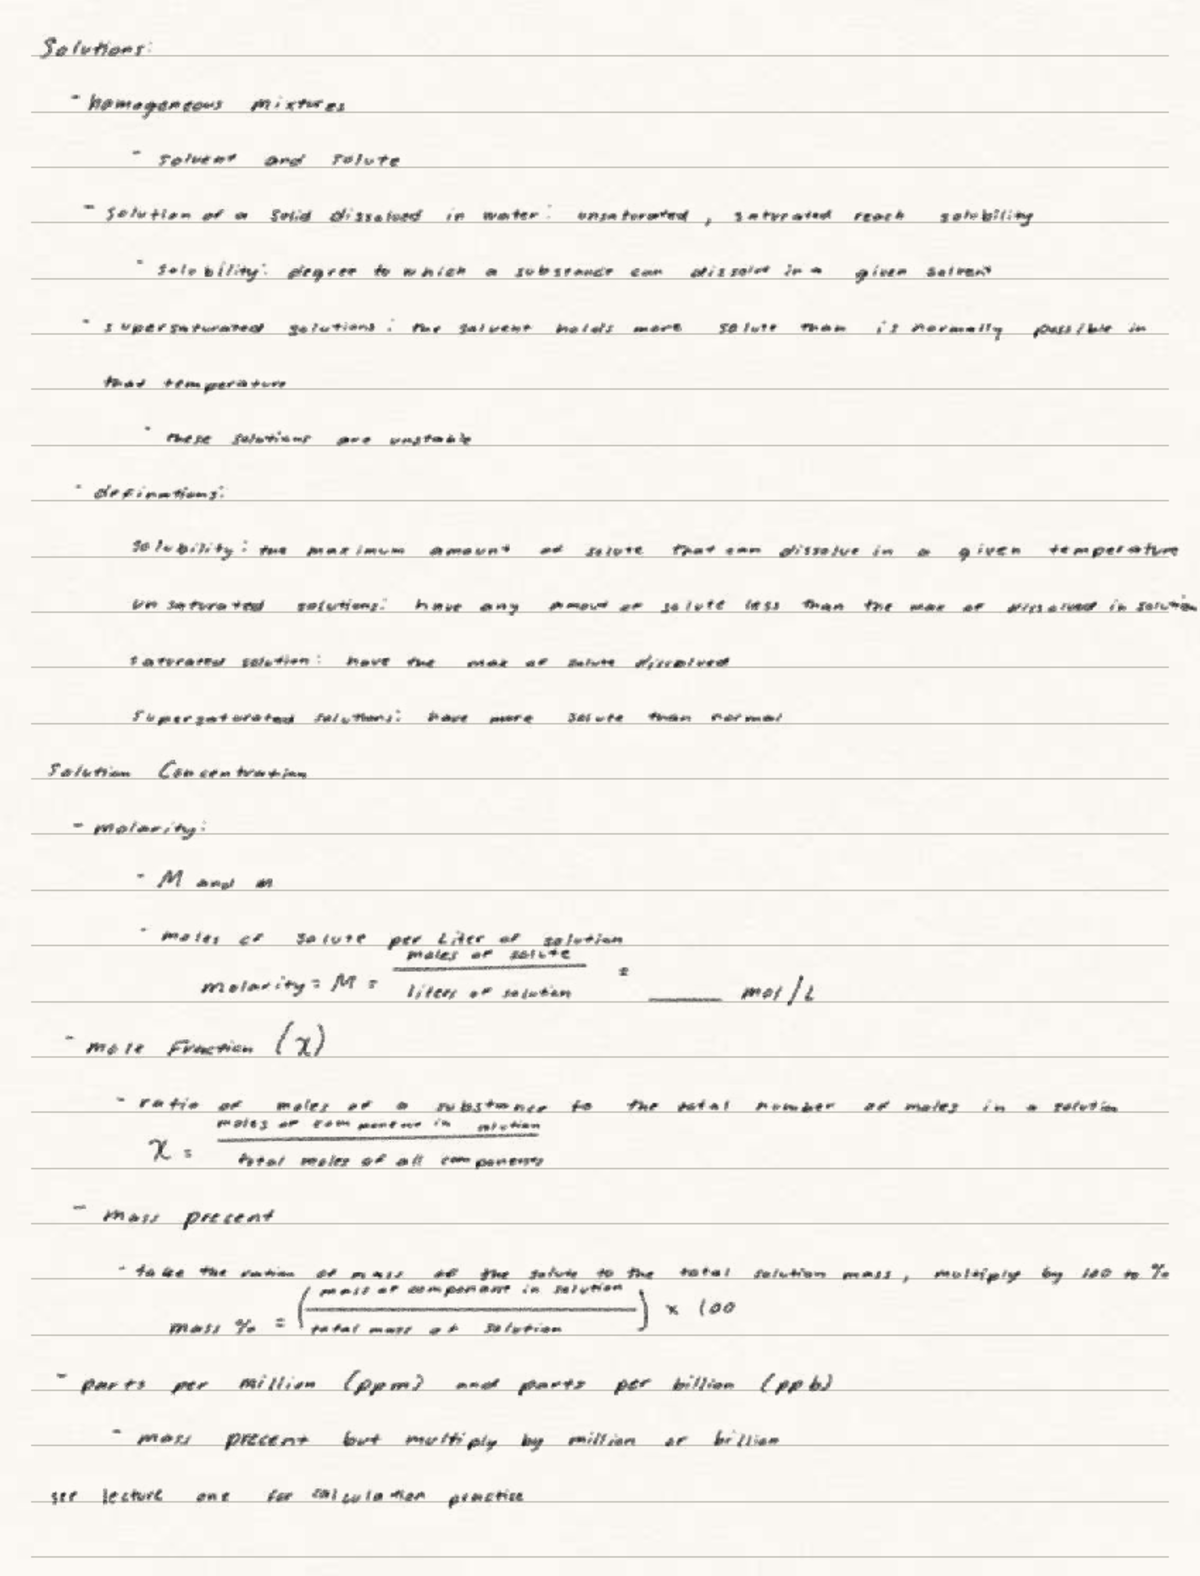 Solutions:
- homogeneous mixtures
- solvent and solute
- solution of a solid dissolved in water: unsaturated, saturated reach solubility
- solubility: degree to which a substance can dissolve in a given solvent
- supersaturated solutions: the solvent holds more solute than is normally possible in
that temperature
- these solutions are unstable
- definations:
solubility: the maximum amount of solute that can dissolve in a given temperature
unsaturated solutions: have any amout of solute less than the max of dissolved in solution
saturated solution: have the max of solute dissolved
supersaturated solutions: have more solute than normal
Solution Concentration
- molarity:
- M and m
- moles of solute per Liter of solution
molarity = M = moles of solute / liters of solution = ____ mol/L
- mole Fraction (χ)
- ratio of moles of a substance to the total number of moles in a solution
χ = moles of component in solution / total moles of all components
- mass precent
- take the ration of mass of the solute to the total solution mass, multiply by 100 to %
mass % = (mass of component in solution / total mass of solution) x 100
- parts per million (ppm) and parts per billion (ppb)
- mass precent but multiply by million or billion
see lecture one for calculation practice